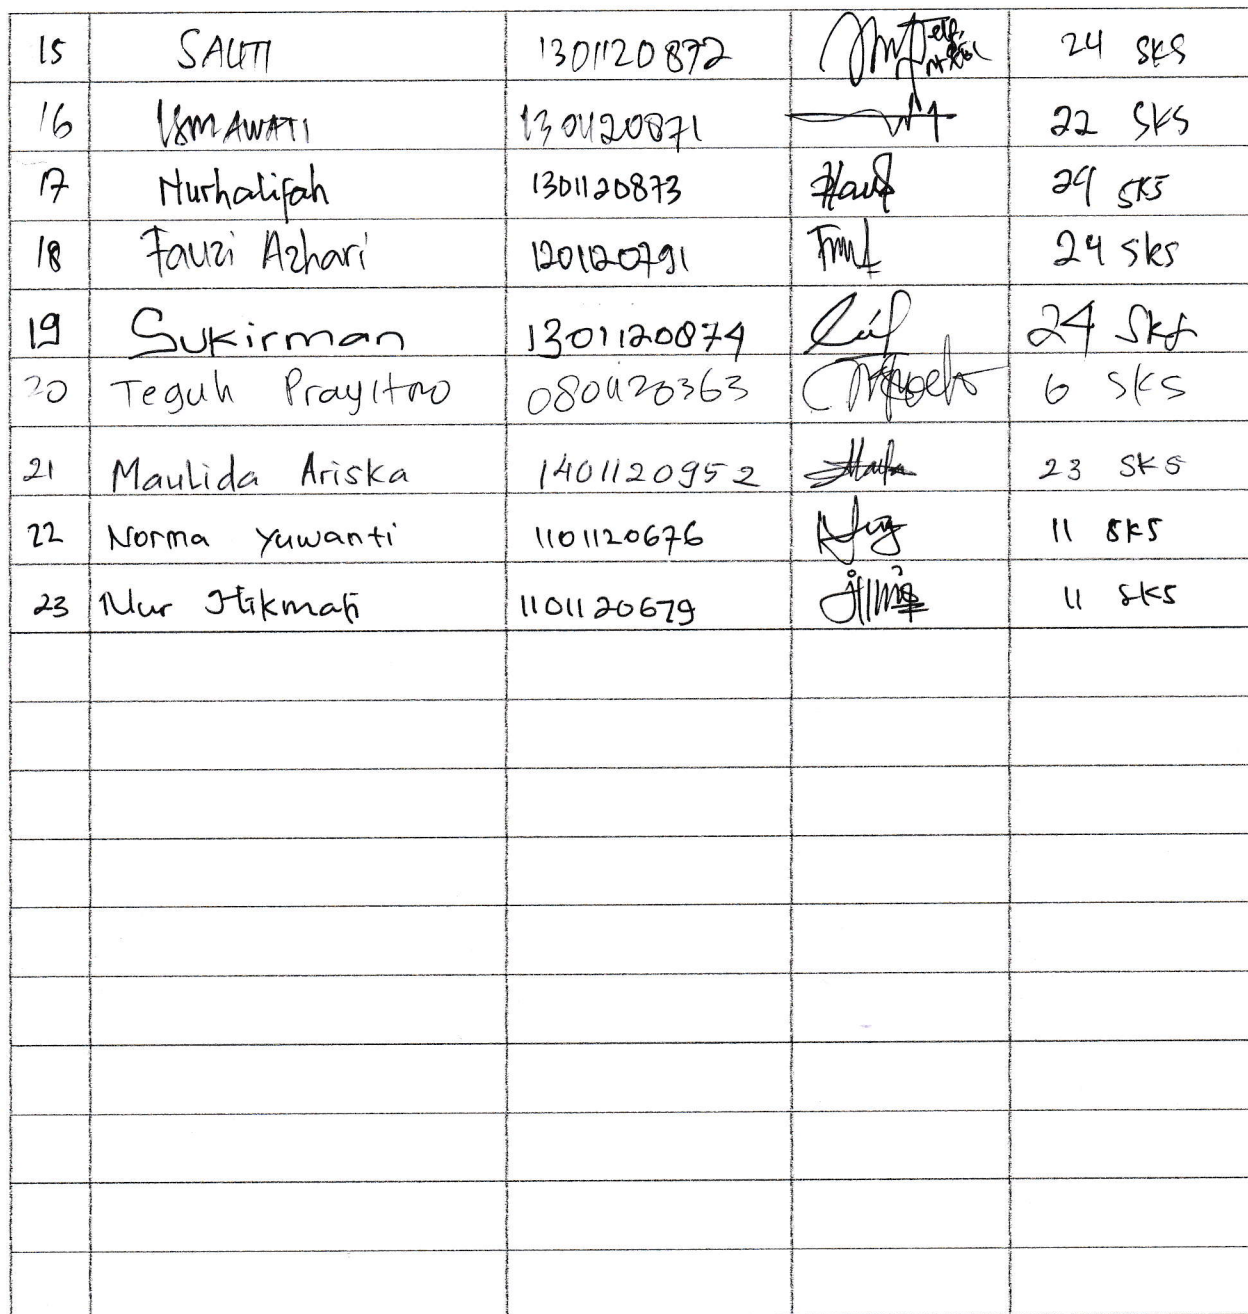 15 SAUTI 1301120872 24 SKS
16 ISMAWATI 1301120871 22 SKS
17 Nurhalifah 1301120873 24 SKS
18 Fauzi Azhari 1201120791 24 sks
19 Sukirman 1301120874 24 Sks
20 Teguh Prayitno 0801120363 6 SKS
21 Maulida Ariska 1401120952 23 SKS
22 Norma Yuwanti 1101120676 11 SKS
23 Nur Hikmah 1101120679 11 SKS